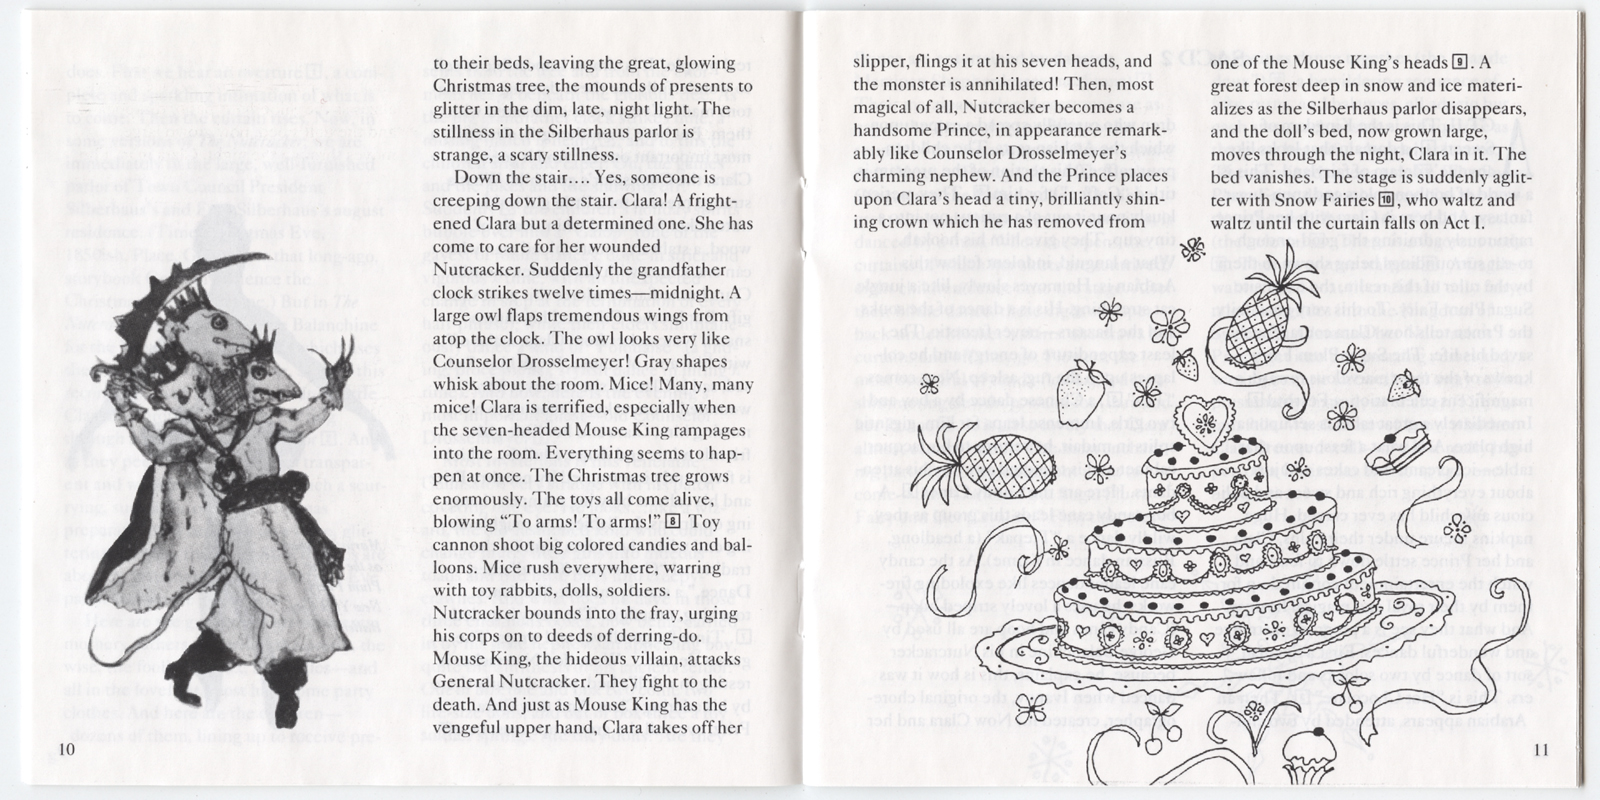 to their beds, leaving the great, glowing
Christmas tree, the mounds of presents to
glitter in the dim, late, night light. The
stillness in the Silberhaus parlor is
strange, a scary stillness.
Down the stair.... Yes, someone is
creeping down the stair. Clara! A fright-
ened Clara but a determined one. She has
come to care for her wounded
Nutcracker. Suddenly the grandfather
clock strikes twelve times—midnight. A
large owl flaps tremendous wings from
atop the clock. The owl looks very like
Counselor Drosselmeyer! Gray shapes
whisk about the room. Mice! Many, many
mice! Clara is terrified, especially when
the seven-headed Mouse King rampages
into the room. Everything seems to hap-
pen at once. The Christmas tree grows
enormously. The toys all come alive,
blowing “To arms! To arms!” 8 Toy
cannon shoot big colored candies and bal-
loons. Mice rush everywhere, warring
with toy rabbits, dolls, soldiers.
Nutcracker bounds into the fray, urging
his corps on to deeds of derring-do.
Mouse King, the hideous villain, attacks
General Nutcracker. They fight to the
death. And just as Mouse King has the
vengeful upper hand, Clara takes off her
10
slipper, flings it at his seven heads, and
the monster is annihilated! Then, most
magical of all, Nutcracker becomes a
handsome Prince, in appearance remark-
ably like Counselor Drosselmeyer’s
charming nephew. And the Prince places
upon Clara’s head a tiny, brilliantly shin-
ing crown which he has removed from
one of the Mouse King’s heads 9. A
great forest deep in snow and ice materi-
alizes as the Silberhaus parlor disappears,
and the doll’s bed, now grown large,
moves through the night, Clara in it. The
bed vanishes. The stage is suddenly aglit-
ter with Snow Fairies 10, who waltz and
waltz until the curtain falls on Act I.
11